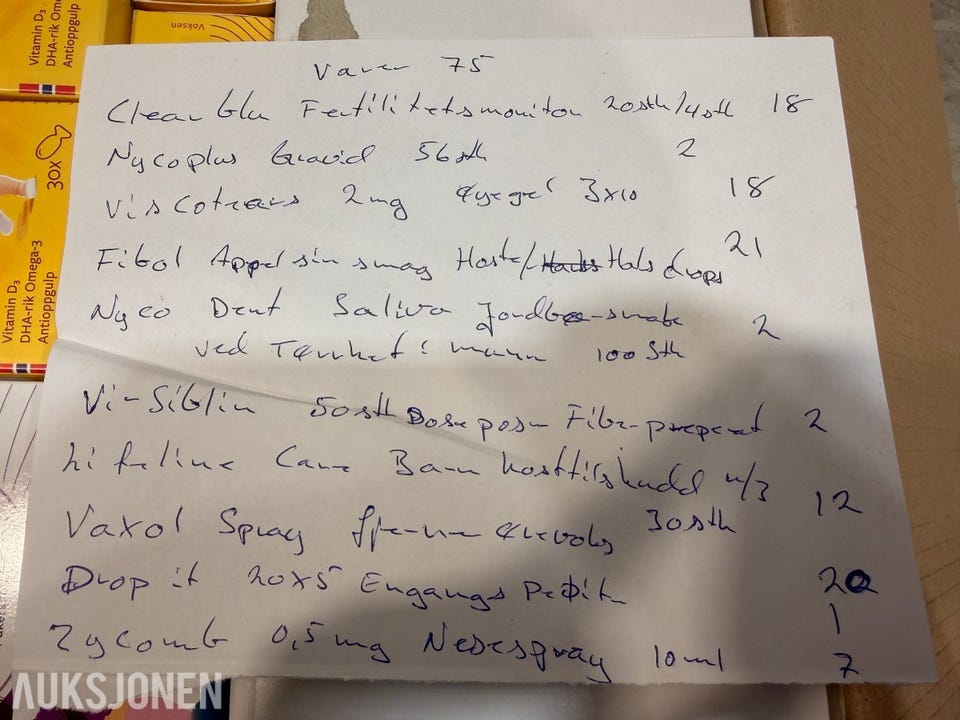 Voksen
Vitamin D3
DHA-rik Omega-3
Antioppgulp
30X
Vitamin D3
DHA-rik Omega-3
Antioppgulp
Varer 75
Clear blu Fertilitetsmonitor 20stk/4stk 18
Nycoplus Gravid 56stk 2
Viscotears 2mg Øyegel 3x10 18
Fibol Appelsinsmag Hoste/Halsdrops 21
Nyco Dent Saliva Jordbær-smak 2
ved Tørrhet i munn 100 Stk
Vi-Siblin 50stk Doseposer Fiberpreperat 2
Lifeline Care Barn kosttilskudd m/3 12
Vaxol Spray fjerner ørevoks 30stk
Drop it 20x5 Engangs Pipette 20
1
Zycomb 0,5mg Nesespray 10ml 7
AUKSJONEN